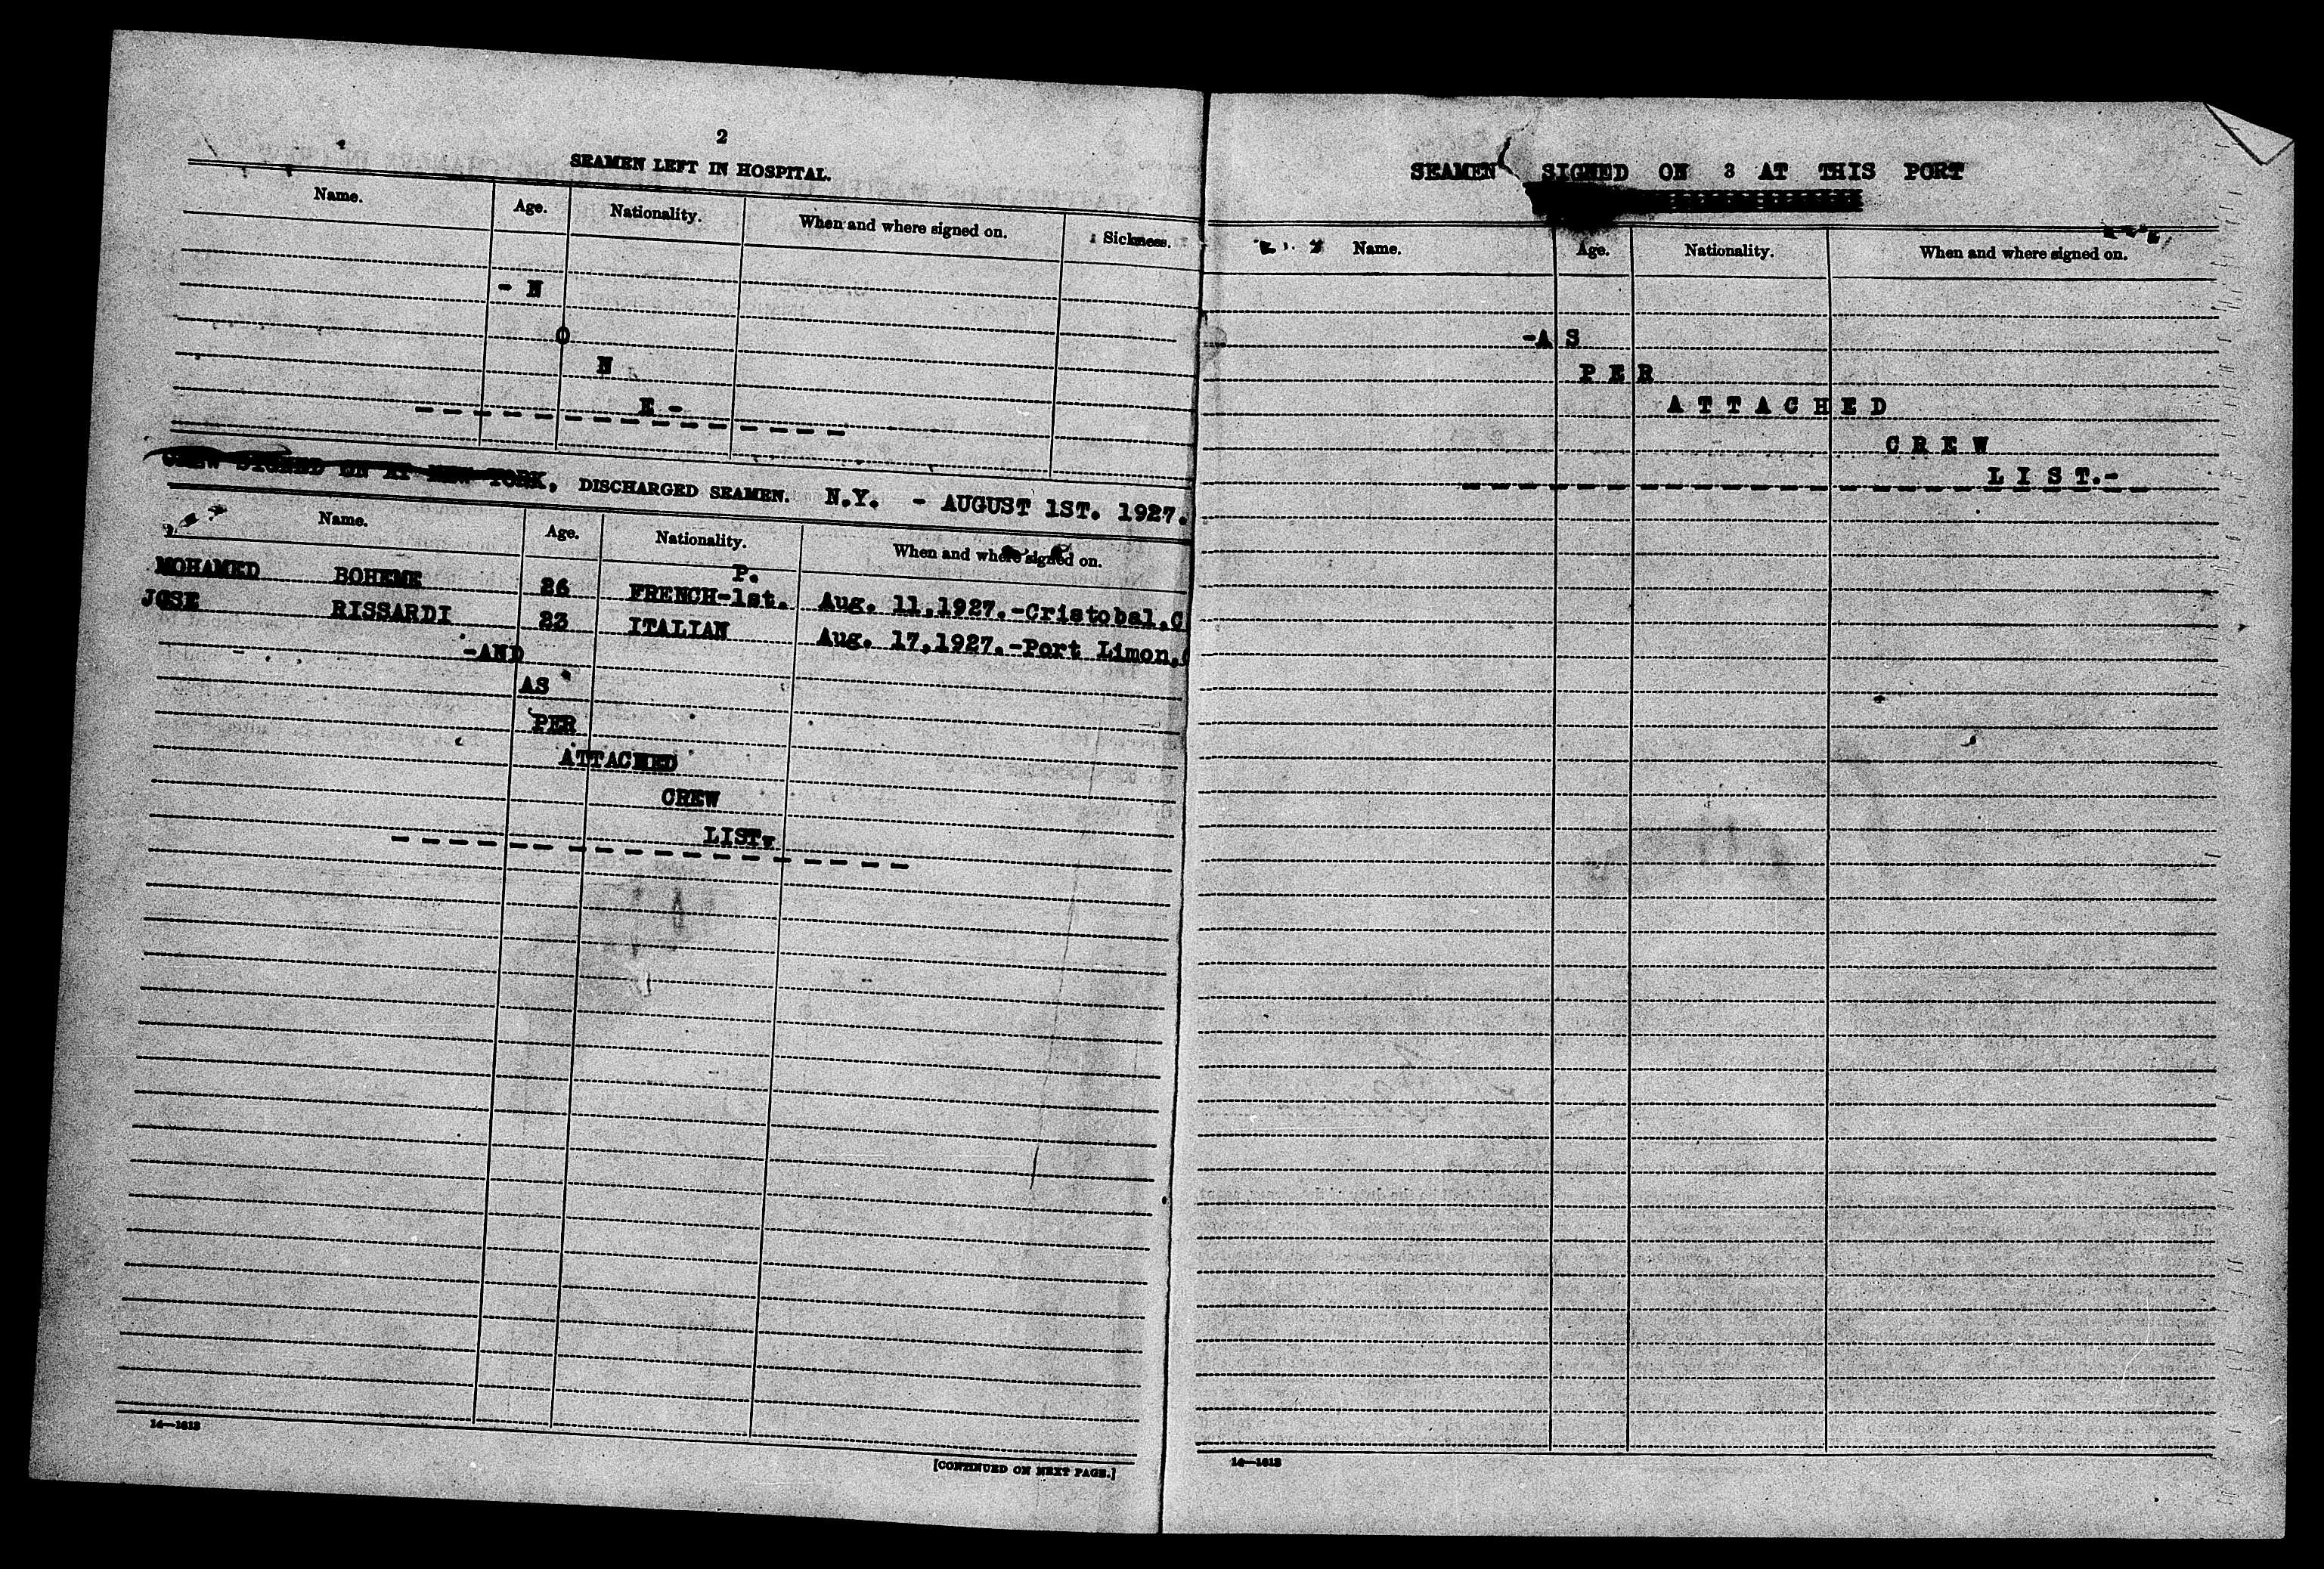 2
SEAMEN LEFT IN HOSPITAL.
Name. Age. Nationality. When and where signed on. Sickness.
- N
O
N
E -
CREW SIGNED ON AT NEW YORK, DISCHARGED SEAMEN. N.Y. - AUGUST 1ST. 1927.
Name. Age. Nationality. When and where signed on.
P.
MOHAMED BOHEME 26 FRENCH-1st. Aug. 11,1927.-Cristobal,C
JOSE RISSARDI 23 ITALIAN Aug. 17,1927.-Port Limon,
-AND
AS
PER
ATTACHED
CREW
LIST.
14—1613
[CONTINUED ON NEXT PAGE.]
SEAMEN SIGNED ON 3 AT THIS PORT
Name. Age. Nationality. When and where signed on.
-A S
P E R
A T T A C H E D
C R E W
L I S T.-
14—1613